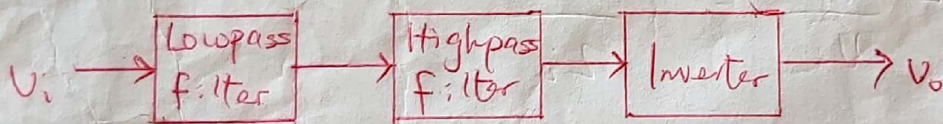 Lowpass
filter
Highpass
filter
Inverter
Vi
Vo